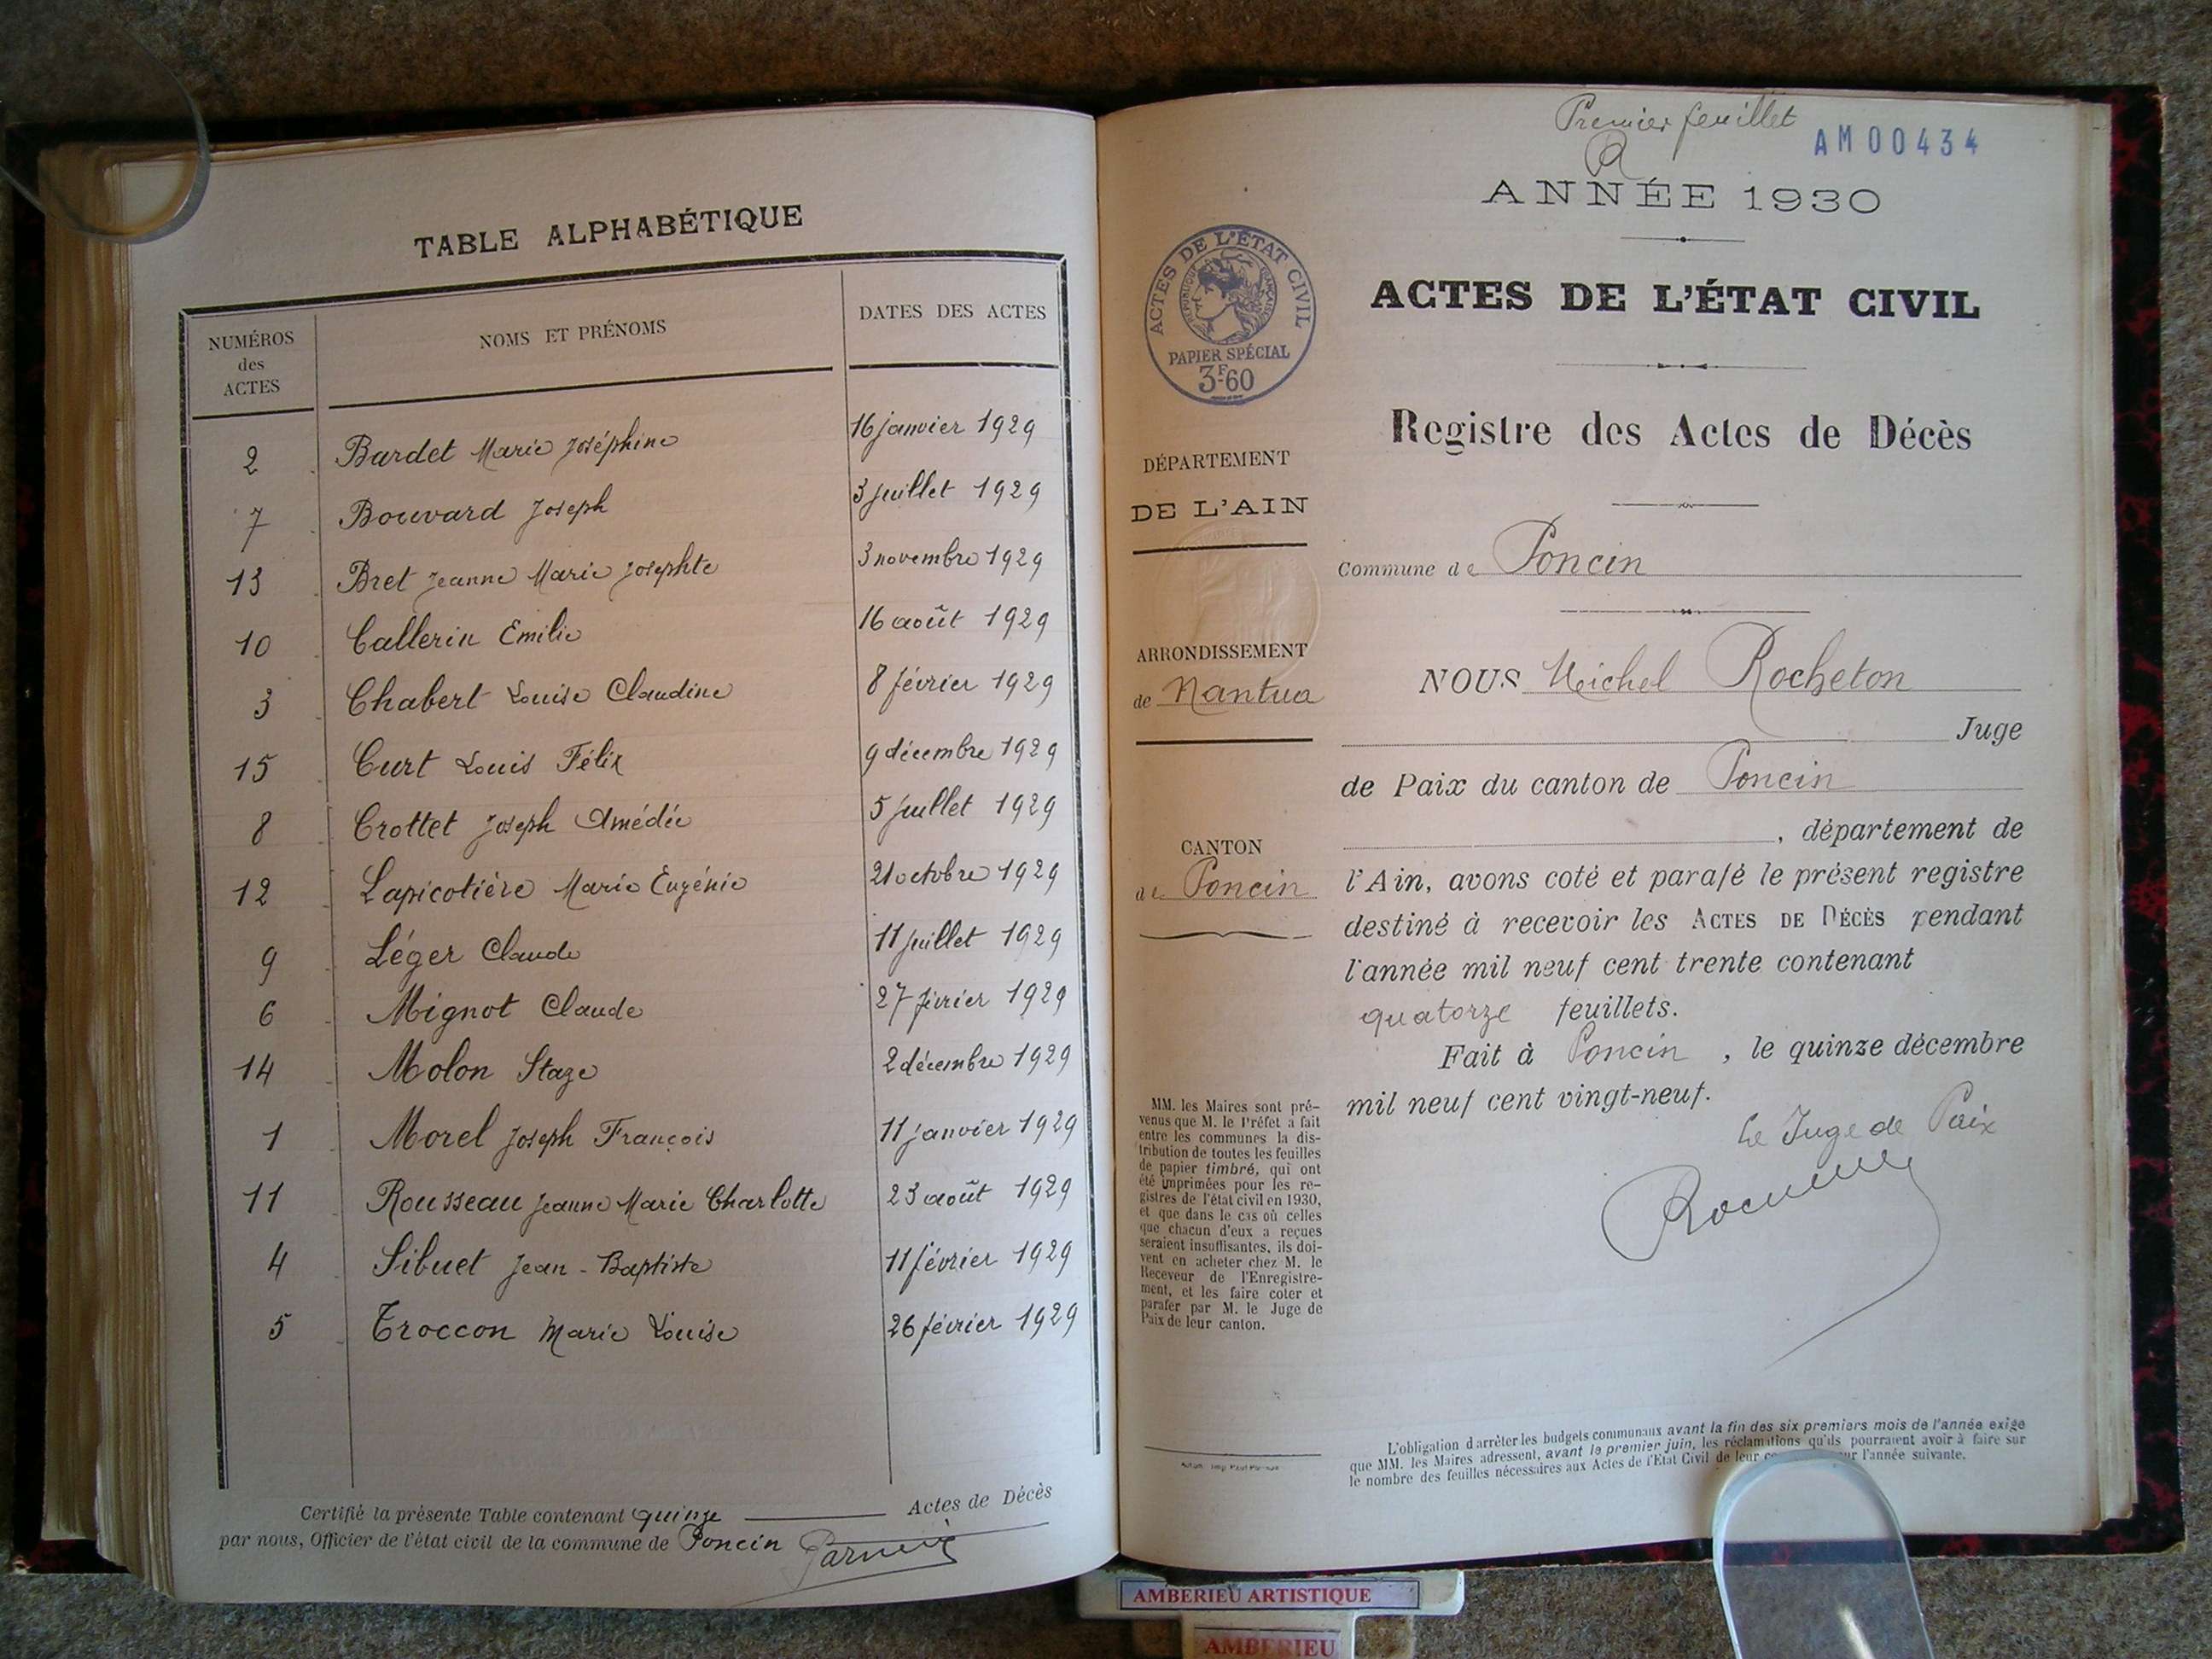 TABLE ALPHABÉTIQUE
NUMÉROS des ACTES NOMS ET PRÉNOMS DATES DES ACTES
2 Bardet Marie Joséphine 16 janvier 1929
7 Bouvard Joseph 3 juillet 1929
13 Bret Jeanne Marie Josephte 3 novembre 1929
10 Callerin Emilie 16 août 1929
3 Chabert Louise Claudine 8 février 1929
15 Curt Louis Félix 9 décembre 1929
8 Crottet Joseph Amédée 5 juillet 1929
12 Lapicotière Marie Eugénie 21 octobre 1929
9 Léger Claude 11 juillet 1929
6 Mignot Claude 27 février 1929
14 Molon Staze 2 décembre 1929
1 Morel Joseph François 11 janvier 1929
11 Rousseau Jeanne Marie Charlotte 23 août 1929
4 Sibuet Jean-Baptiste 11 février 1929
5 Troccon Marie Louise 26 février 1929
Certifié la présente Table contenant quinze Actes de Décès
par nous, Officier de l'état civil de la commune de Poncin
Premier feuillet
AM00434
ANNÉE 1930
ACTES DE L'ÉTAT CIVIL
Registre des Actes de Décès
ACTES DE L'ÉTAT CIVIL
RÉPUBLIQUE FRANÇAISE
PAPIER SPÉCIAL
3F60
DÉPARTEMENT
DE L'AIN
ARRONDISSEMENT
de Nantua
CANTON
de Poncin
MM. les Maires sont pré-
venus que M. le Préfet a fait
entre les communes la dis-
tribution de toutes les feuilles
de papier timbré, qui ont
été imprimées pour les re-
gistres de l'état civil en 1930,
et que dans le cas où celles
que chacun d'eux a reçues
seraient insuffisantes, ils doi-
vent en acheter chez M. le
Receveur de l'Enregistre-
ment, et les faire coter et
parafer par M. le Juge de
Paix de leur canton.
Commune de Poncin
NOUS Michel Rocheton
Juge
de Paix du canton de Poncin
, département de
l'Ain, avons coté et parafé le présent registre
destiné à recevoir les ACTES DE DÉCÈS pendant
l'année mil neuf cent trente contenant
quatorze feuillets.
Fait à Poncin, le quinze décembre
mil neuf cent vingt-neuf.
Le Juge de Paix
L'obligation d'arrêter les budgets communaux avant la fin des six premiers mois de l'année exige
que MM. les Maires adressent, avant le premier juin, les réclamations qu'ils pourraient avoir à faire sur
le nombre des feuilles nécessaires aux Actes de l'État Civil de leur l'année suivante.
AMBERIEU ARTISTIQUE
AMBERIEU